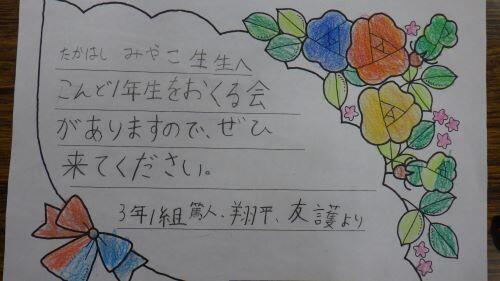 たかはし みやこ 生生へ
こんど1年生をおくる会
がありますので、ぜひ
来てください。
3年1組 篤人、翔平、友護より